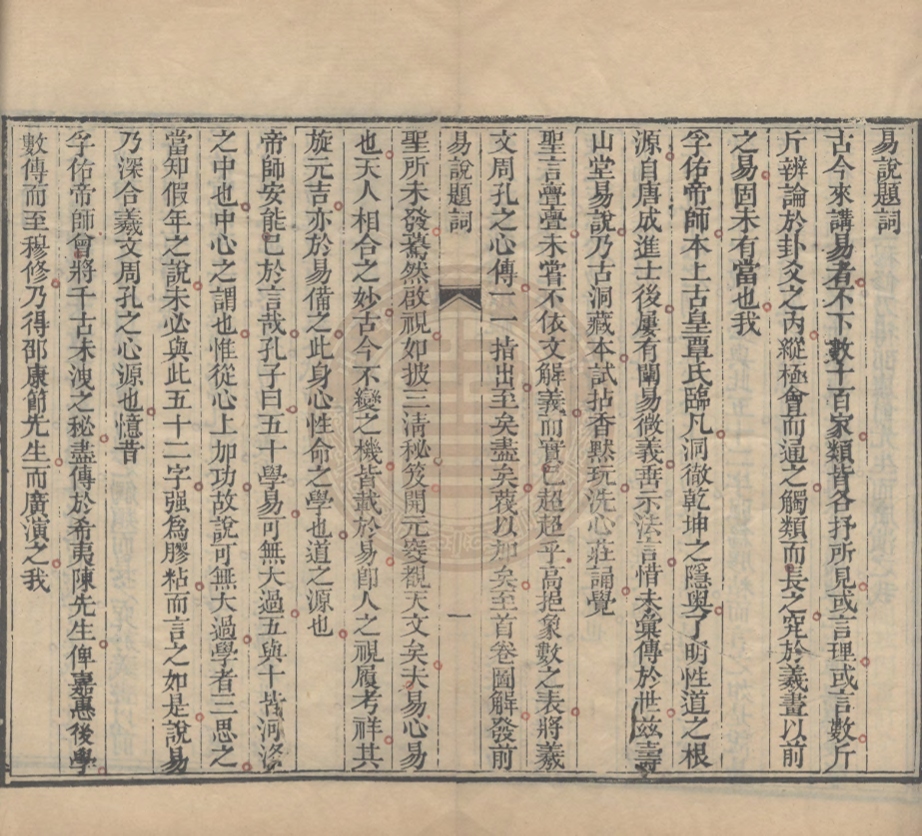 易說題詞
古今來講易者不下數十百家類皆各抒所見或言理或言數斤
斤辨論於卦爻之內縱極會而通之觸類而長之究於羲畫以前
之易固未有當也我
孚佑帝師本上古皇覃氏臨凡洞徹乾坤之隱奧了明性道之根
源自唐成進士後屢有闡易微義垂示法言惜未彙傳於世茲壽
山堂易說乃古洞藏本試拈香黙玩洗心莊誦覺
聖言亹亹未嘗不依文解義而實已超超乎高挹象數之表將羲
文周孔之心傳一一指出至矣盡矣蔑以加矣至首卷圖解發前
易說題詞
一
聖所未發驀然啟視如披三淸秘笈開元窔覩天文矣夫易心易
也天人相合之妙古今不變之機皆載於易卽人之視履考祥其
旋元吉亦於易備之此身心性命之學也道之源也
帝師安能已於言哉孔子曰五十學易可無大過五與十皆河洛
之中也中心之謂也惟從心上加功故說可無大過學者三思之
當知假年之說未必與此五十二字强為膠粘而言之如是說易
乃深合羲文周孔之心源也憶昔
孚佑帝師曾將千古未洩之秘盡傳於希夷陳先生俾嘉惠後學
數傳而至穆修乃得邵康節先生而廣演之我